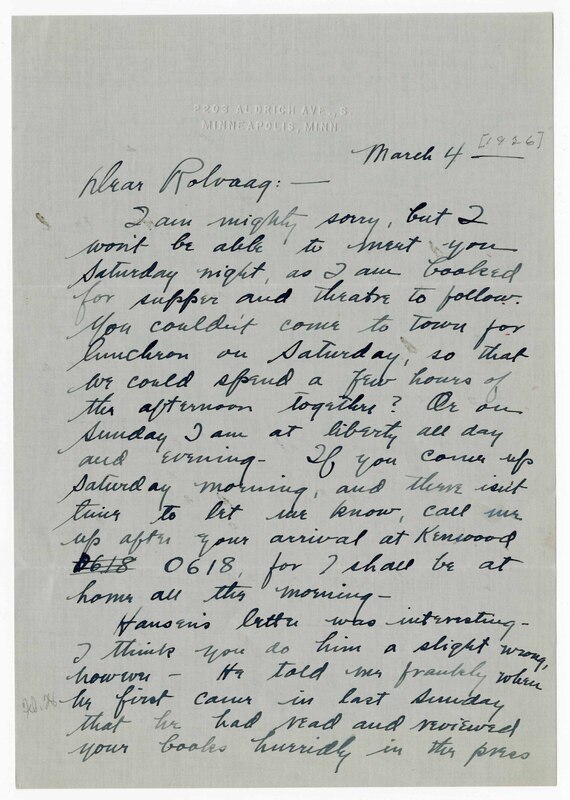 2203 ALDRICH AVE., S.
MINNEAPOLIS, MINN.
March 4 [1926]
Dear Rolvaag: —
I am mighty sorry, but I
won't be able to meet you
Saturday night, as I am booked
for supper and theatre to follow.
You couldn't come to town for
luncheon on Saturday, so that
we could spend a few hours of
the afternoon together? Or on
Sunday I am at liberty all day
and evening - If you come up
Saturday morning, and there isn't
time to let me know, call me
up after your arrival at Kenwood
0618 0618, for I shall be at
home all the morning -
Hansen's letter was interesting -
I think you do him a slight wrong,
however - He told me frankly when
he first came in last Sunday
that he had read and reviewed
your books hurridly in the press